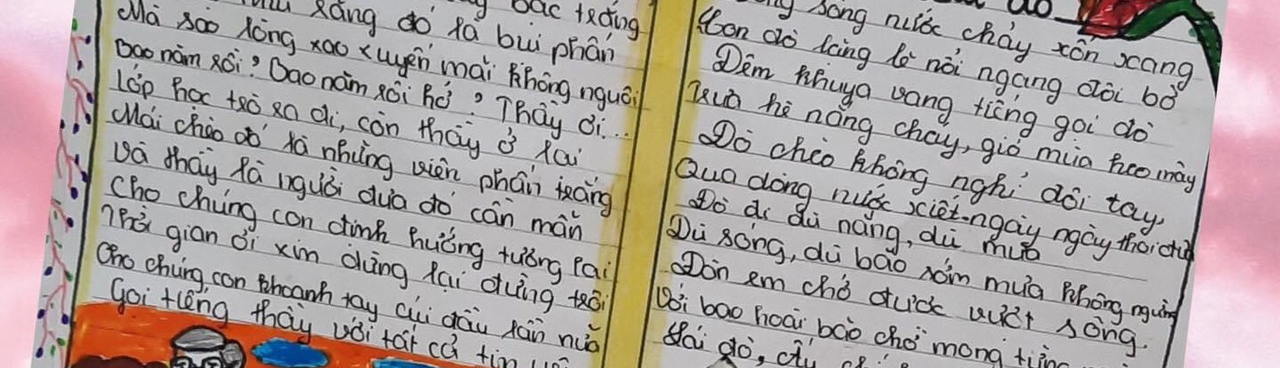 bạc trắng
Mà sao lòng xao xuyến mãi không nguôi
Bao năm rồi? Bao năm rồi hở, Thầy ơi...
Lớp học trò ra đi, còn thầy ở lại
Mái chèo đó là những viên phấn trắng
Và thầy là người đưa đò cần mẫn
Cho chúng con định hướng tương lai
Thời gian ơi xin dừng lại đừng trôi
Cho chúng con khoanh tay cúi đầu lần nữa
Gọi tiếng thầy với tất cả tin
sông nước chảy xôn xang
Con đò lẳng lẽ nối ngang đôi bờ
Đêm khuya vang tiếng gọi đò
Trưa hè nắng cháy, gió mùa heo mây
Đò chèo không nghỉ đôi tay,
Qua dòng nước xiết-ngày ngày thoi
Đò đi dù nắng, dù mưa
Dù sóng, dù bão sớm mưa không ngừng
Đón em chở được vượt sông
Với bao hoài bão chờ mong
lái đò,